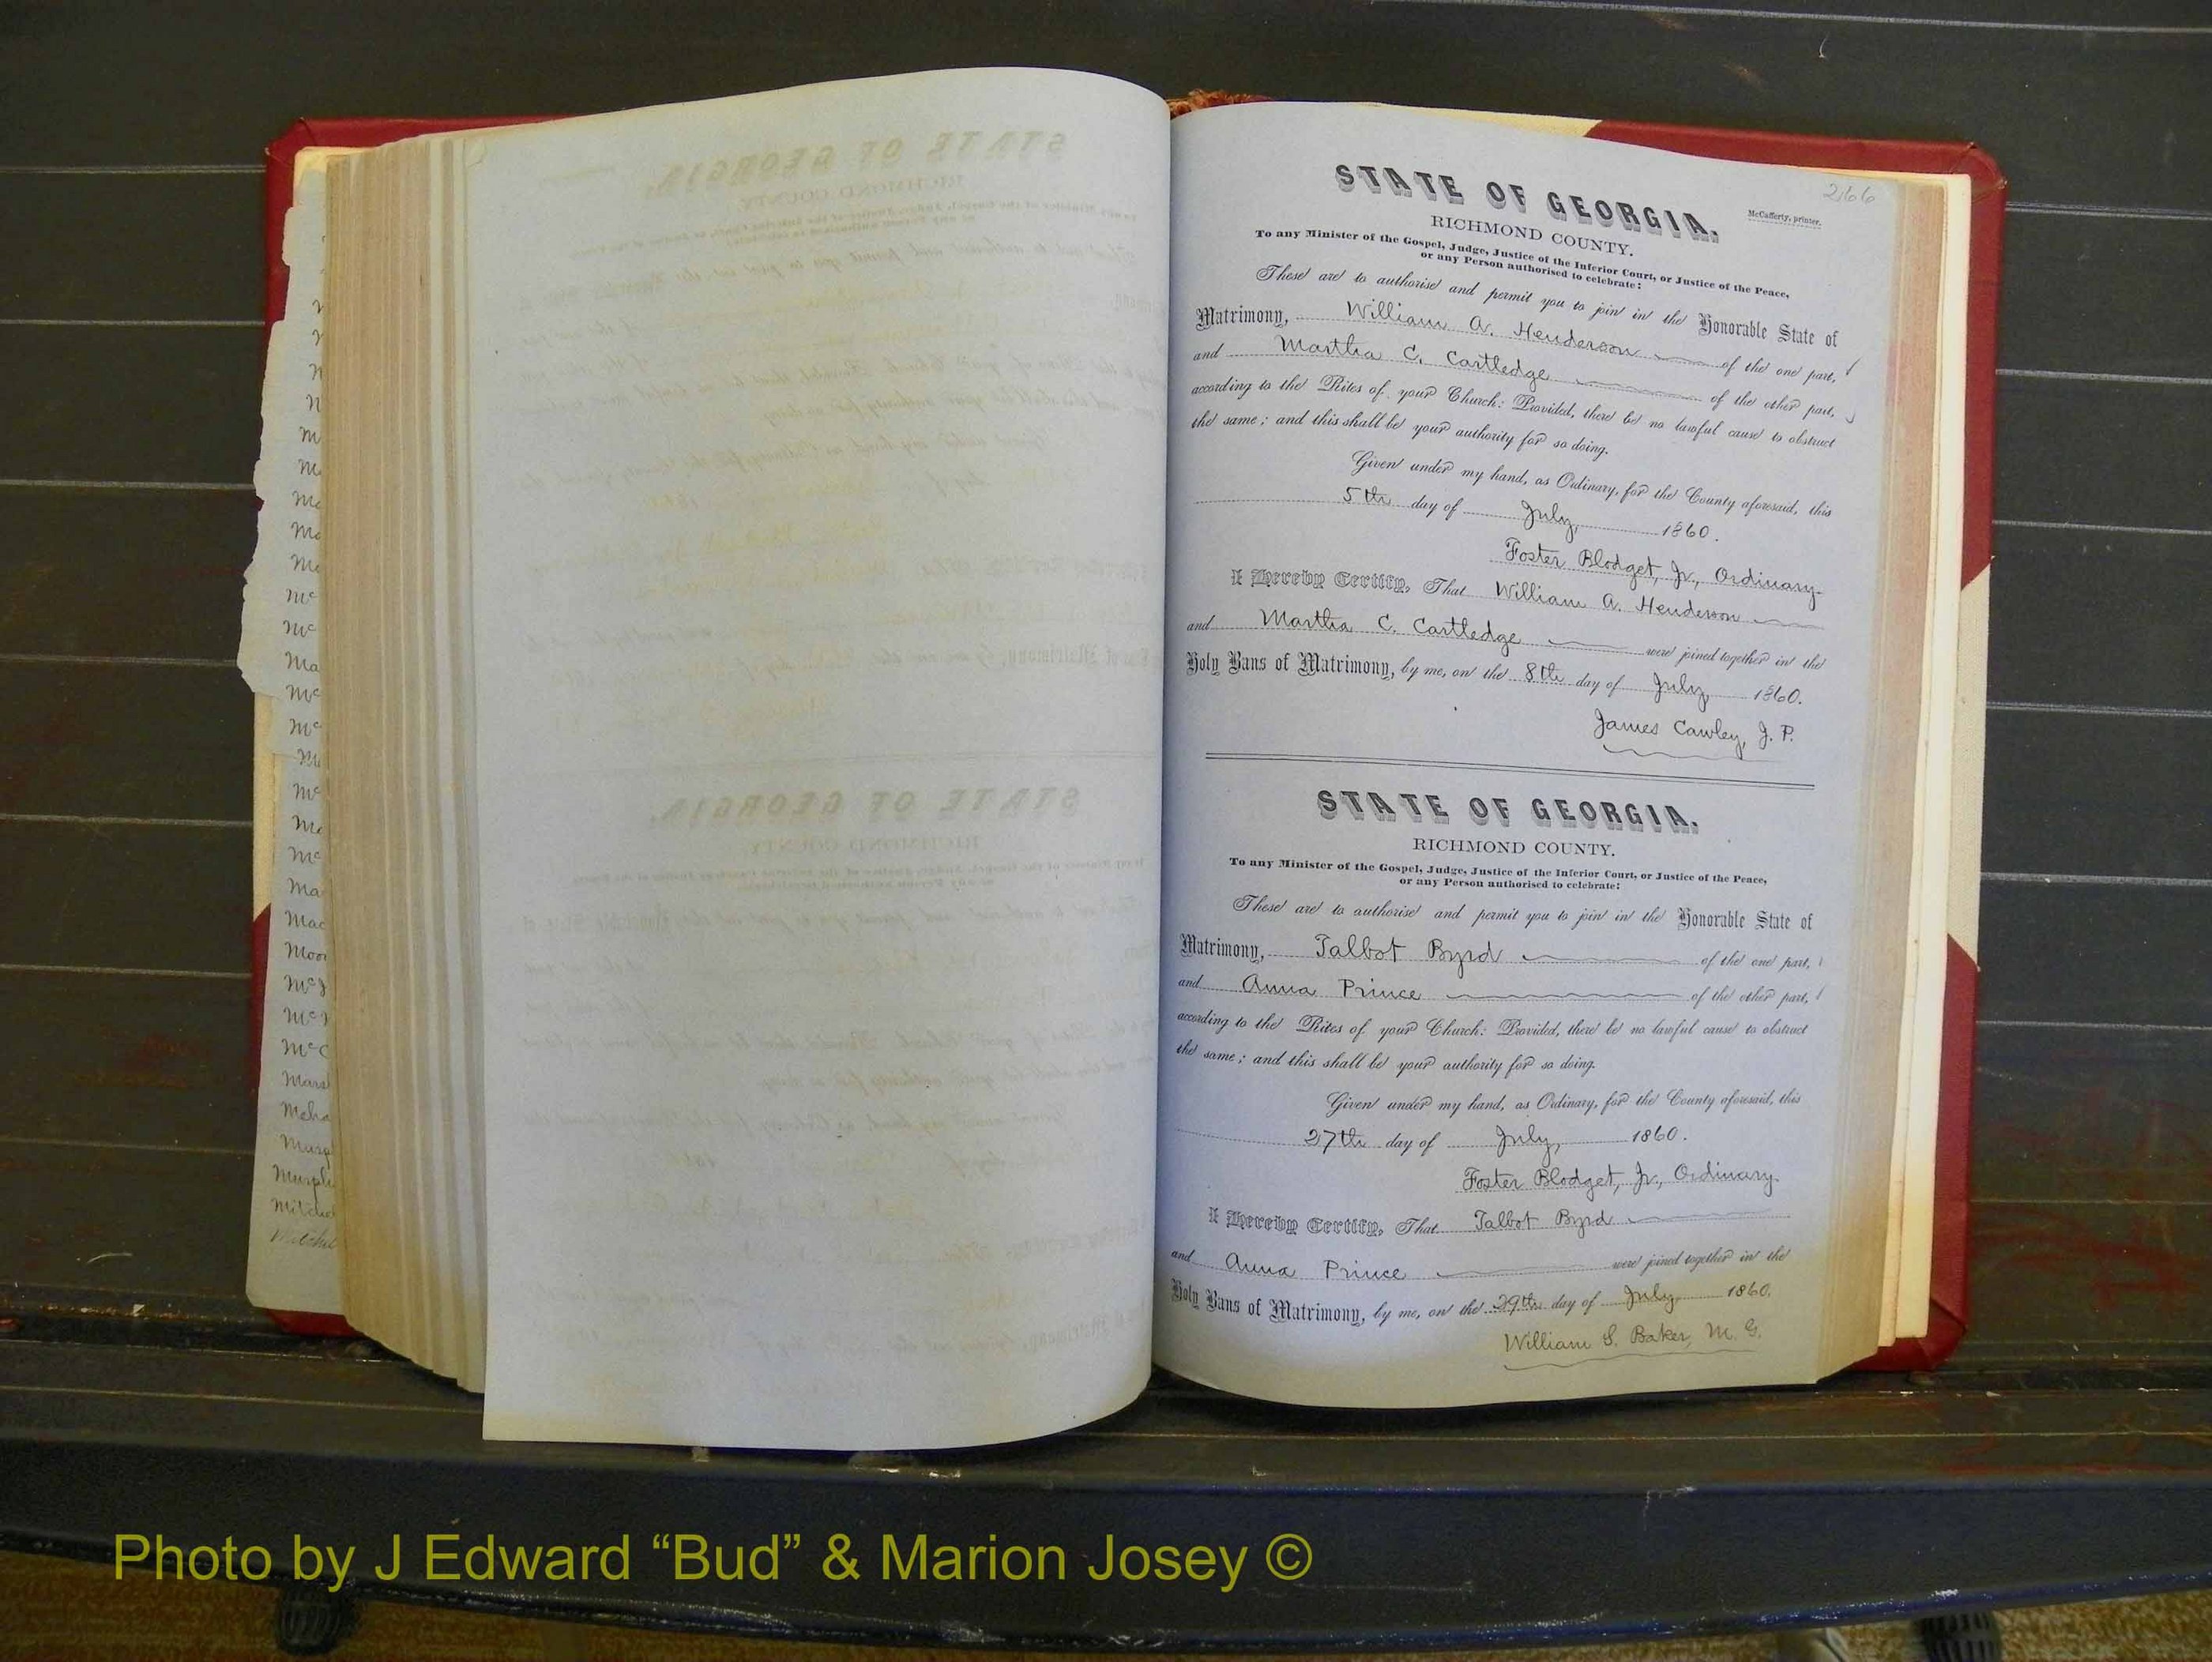 266
STATE OF GEORGIA.
McCafferty, printer.
RICHMOND COUNTY.
To any Minister of the Gospel, Judge, Justice of the Inferior Court, or Justice of the Peace,
or any Person authorised to celebrate:
These are to authorise and permit you to join in the Honorable State of
Matrimony, William A. Henderson of the one part,
and Martha C. Cartledge of the other part,
according to the Rites of your Church: Provided, there be no lawful cause to obstruct
the same; and this shall be your authority for so doing.
Given under my hand, as Ordinary, for the County aforesaid, this
5th day of July, 1860.
Foster Blodget, Jr., Ordinary
I Hereby Certify, That William A. Henderson
and Martha C. Cartledge were joined together in the
Holy Bans of Matrimony, by me, on the 8th day of July 1860.
James Cawley, J. P.
STATE OF GEORGIA.
RICHMOND COUNTY.
To any Minister of the Gospel, Judge, Justice of the Inferior Court, or Justice of the Peace,
or any Person authorised to celebrate:
These are to authorise and permit you to join in the Honorable State of
Matrimony, Talbot Byrd of the one part,
and Anna Prince of the other part,
according to the Rites of your Church: Provided, there be no lawful cause to obstruct
the same; and this shall be your authority for so doing.
Given under my hand, as Ordinary, for the County aforesaid, this
27th day of July, 1860.
Foster Blodget, Jr., Ordinary
I Hereby Certify, That Talbot Byrd
and Anna Prince were joined together in the
Holy Bans of Matrimony, by me, on the 29th day of July 1860.
William S. Baker, M. G.
Photo by J Edward “Bud” & Marion Josey ©